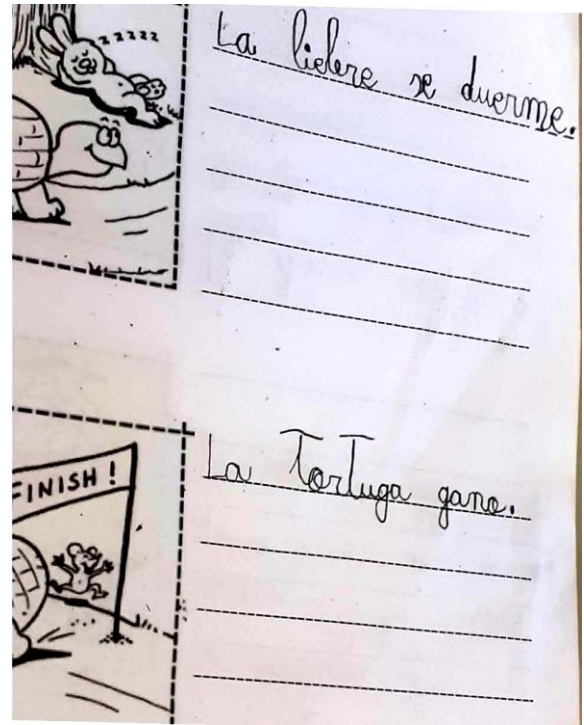 zzzzz
La lielere se duerme.
FINISH !
La TorTuga gano.